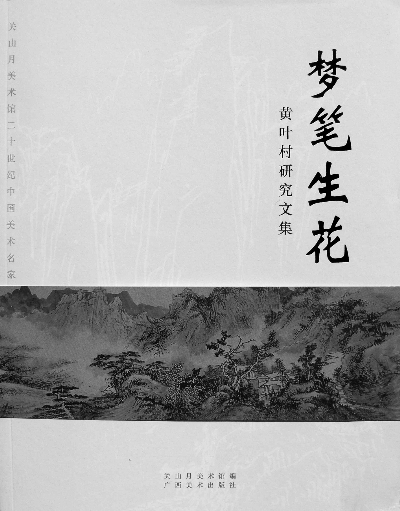 梦笔生花
黄叶村研究文集
关山月美术馆二十世纪中国美术名家
关山月美术馆编
广西美术出版社